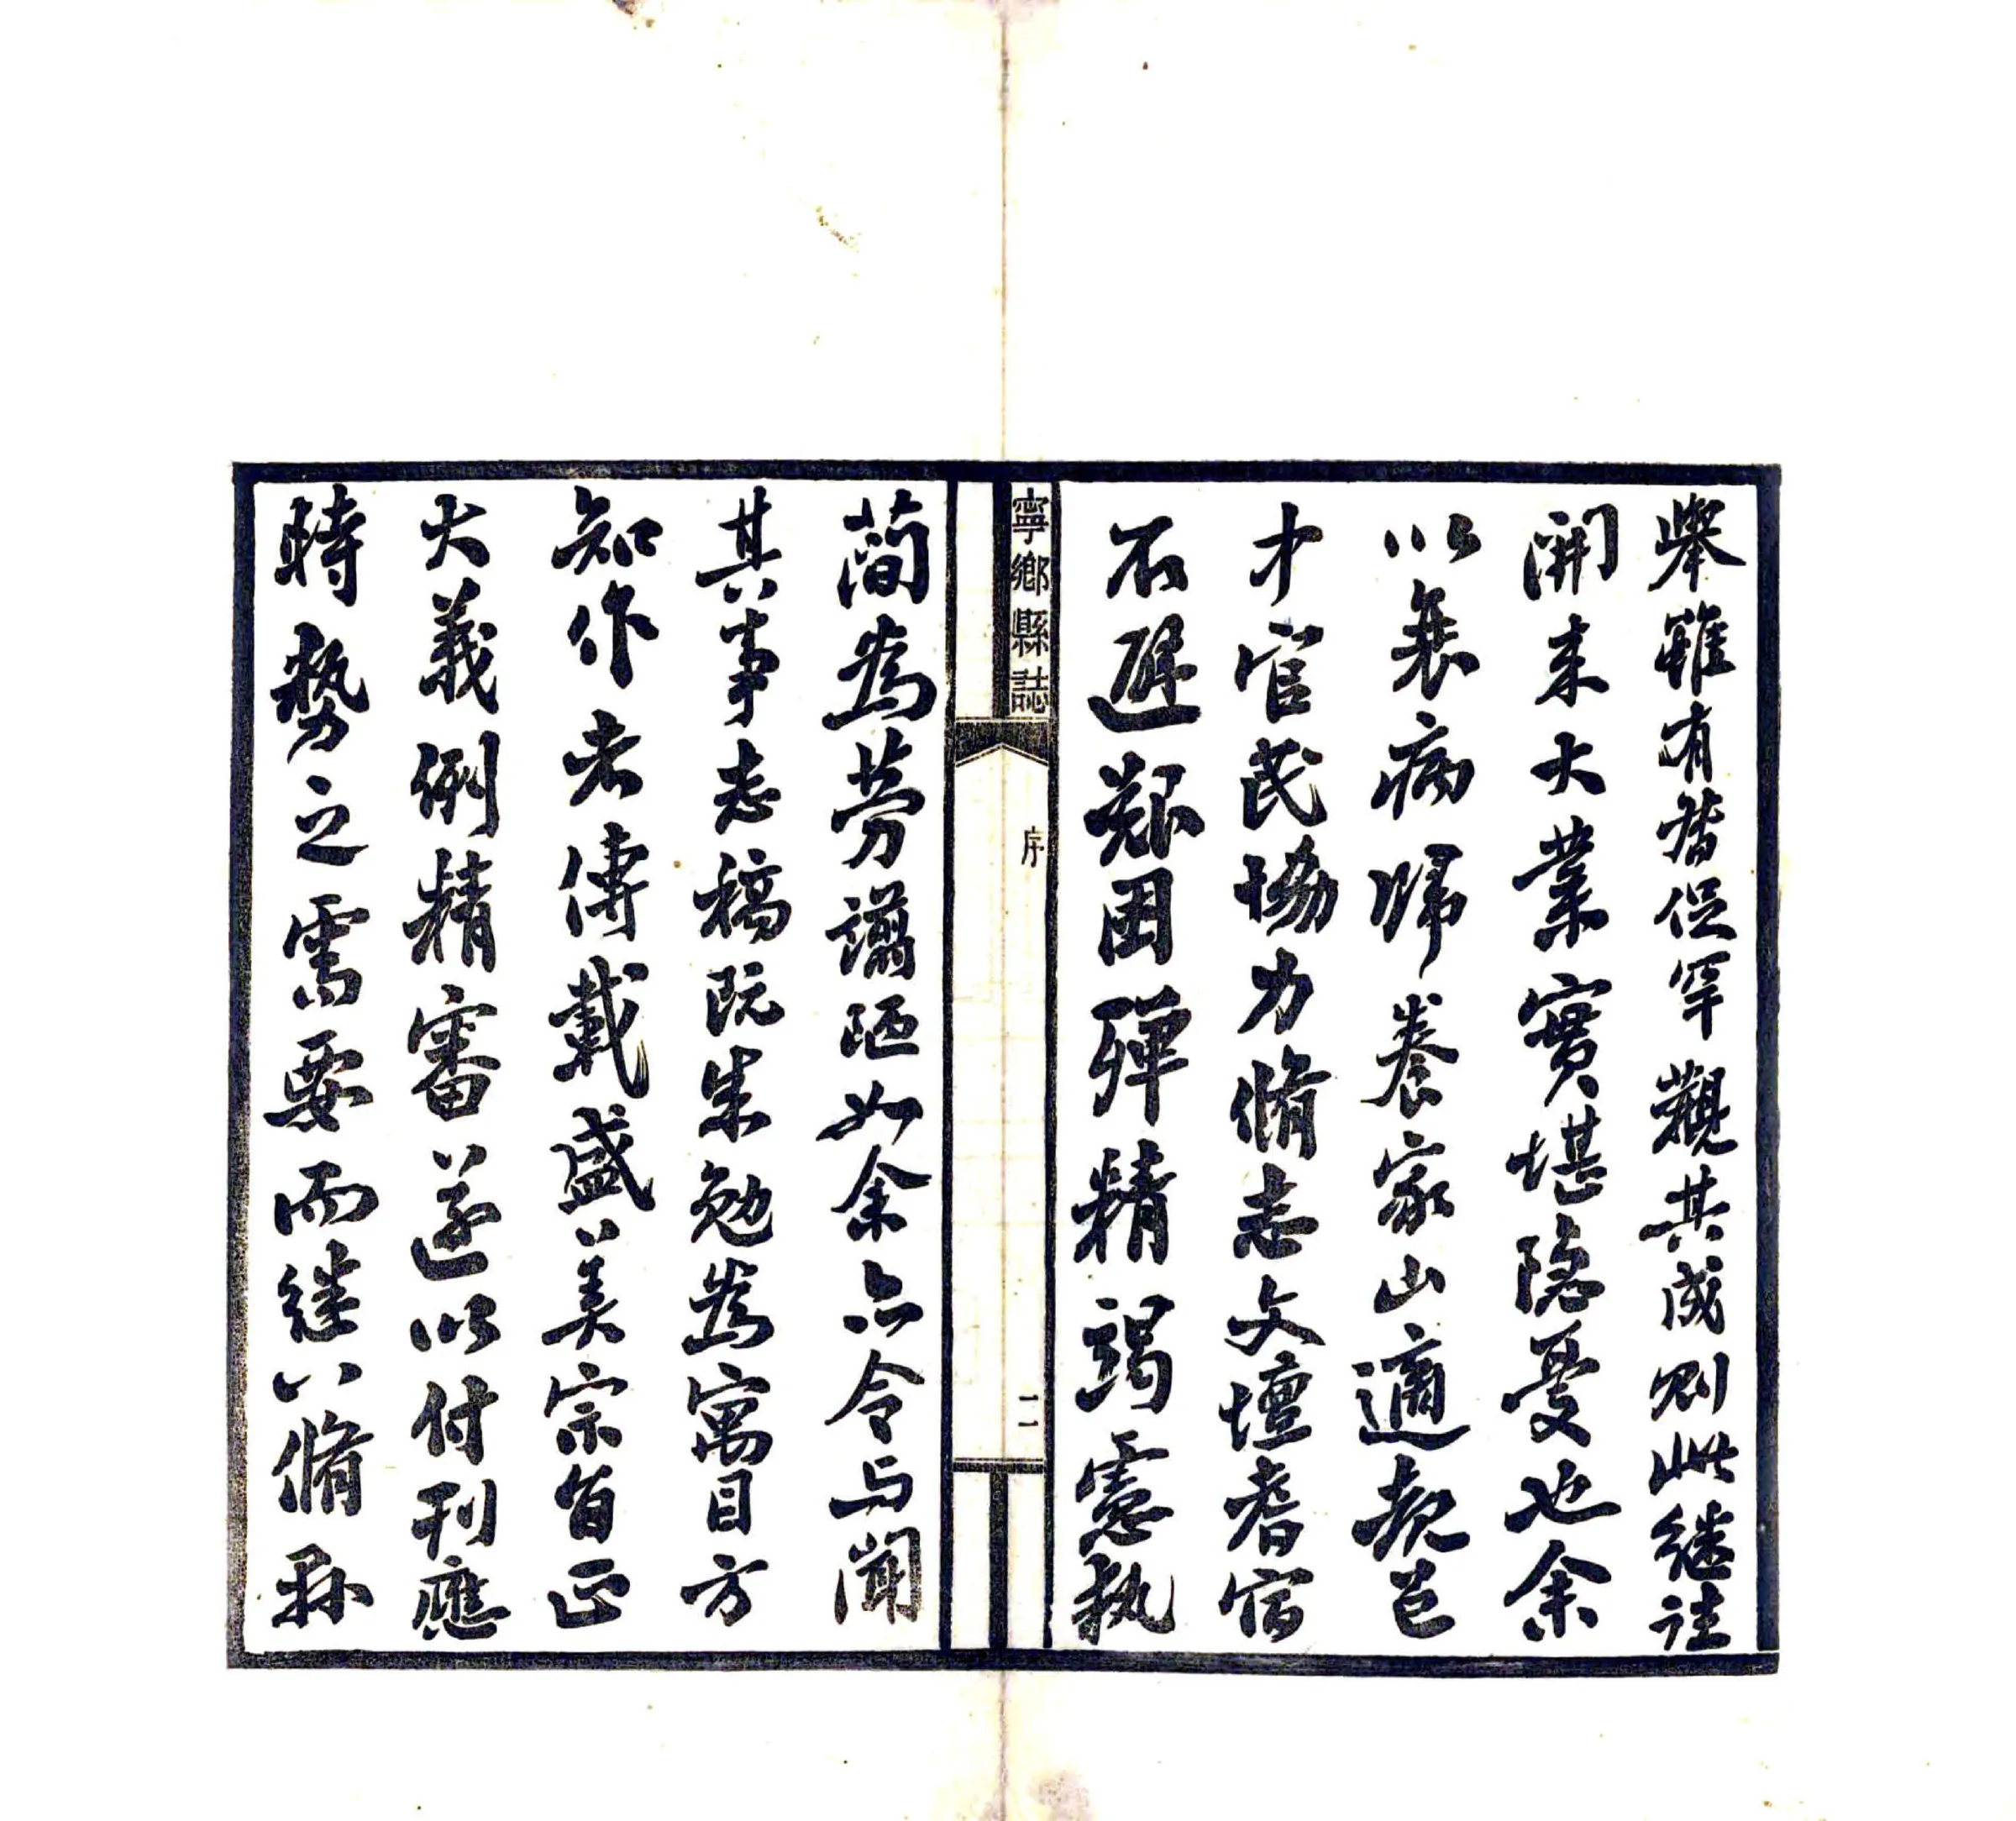 舉雖有督促罕觀其成則此繼往
開來大業實堪隱憂也余
以衰病歸養家山適親邑
才官民協力脩志文壇耆宿
不避艱困殫精竭慮執
寧鄉縣誌
序
二
簡為勞譾陋如余亦令与聞
其事志稿既集勉為寓目方
知作者傳載盛美宗旨正
大義例精審遂以付刊應
時勢之需要而繼以脩縣